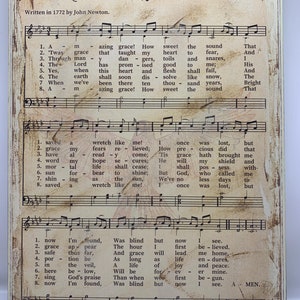 Written in 1772 by John Newton.
1. A - m azing grace! How sweet the sound That
2. 'Twas grace that taught my heart to fear, And
3. Through man - y dan - gers, toils and snares, I
4. The Lord has prom - ised good to me;
5. Yes, when this heart and flesh shall fail, And
6. The earth shall soon dis - solve like snow, The
7. years, Bright
8. A - m azing grace! How sweet the sound That
1. saved a wretch like me! I once was lost, but
2. grace my fears re - lieved; How pre - cious did that
3. have al - read - y come; 'Tis grace hath brought me
4. word my hope se - cures; He will my shield and
5. mor - tal life shall cease, I shall pos - sess,
6. sun for - bear to shine; But God, who called me
7. shin - ing as the sun, We've no less days to
8. saved a wretch like me! I once was lost, but
1. now I'm found, Was blind but now I see.
2. grace ap - pear The hour I first be - lieved.
3. safe thus far, And grace will lead me home.
4. por - tion be As long as life en - dures.
5. in the veil, A life of joy and peace.
6. here be - low, Will be for - ev - er mine.
7. sing God's praise Than when we first be - gun.
8. now I'm found, Was blind but now I see. A - MEN.